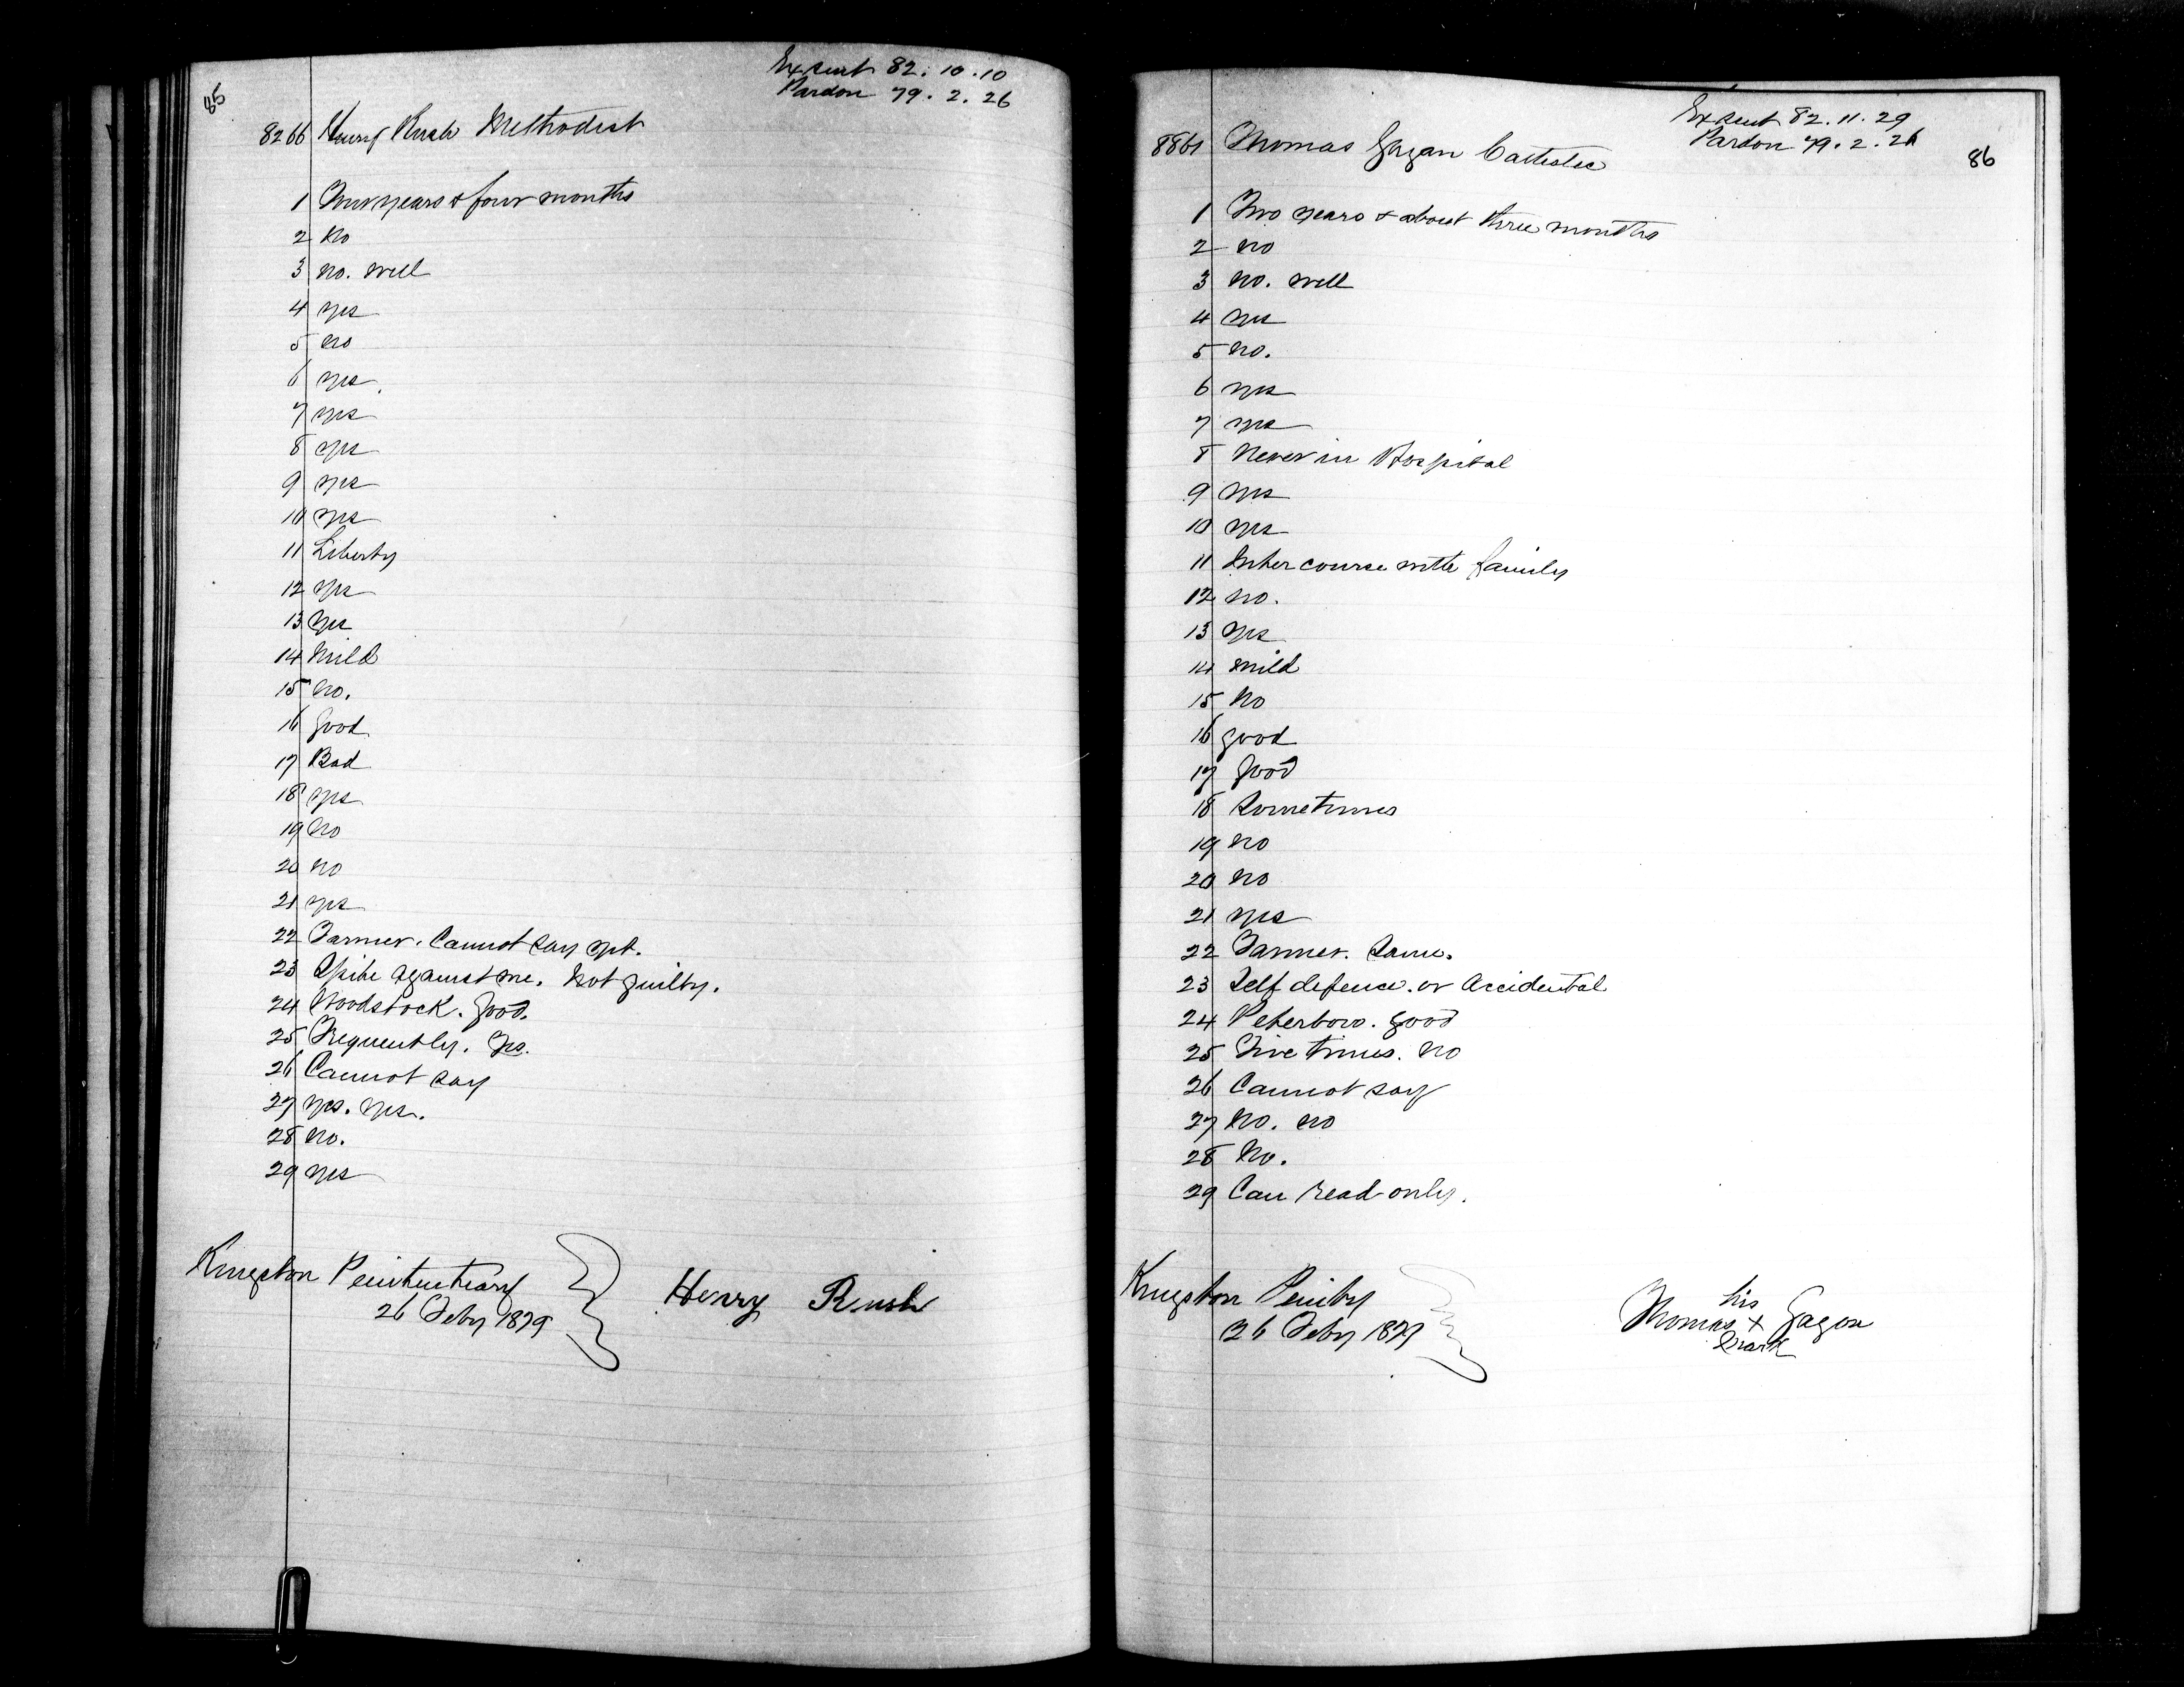 85
Ex sent 82. 10. 10
Pardon 79. 2. 26
8266 Henry Rush Methodist
1 Two years & four months
2 No
3 no. well
4 yes
5 no
6 yes
7 yes
8 yes
9 yes
10 yes
11 Liberty
12 yes
13 yes
14 Mild
15 no.
16 good
17 Bad
18 yes
19 no
20 no
21 yes
22 Farmer. Cannot say yet.
23 Spite against me. Not guilty.
24 Woodstock. good.
25 Frequently. Yes.
26 Cannot say
27 yes. yes.
28 no.
29 yes
Kingston Penitentiary
26 Feby 1879
Henry Rush
86
Ex sent 82. 11. 29
Pardon 79. 2. 26
8861 Thomas Gagan Catholic
1 Two years & about three months
2 no
3 no. well
4 yes
5 no.
6 yes
7 yes
8 Never in Hospital
9 yes
10 yes
11 Intercourse with family
12 no.
13 yes
14 mild
15 No
16 good
17 good
18 Sometimes
19 no
20 no
21 yes
22 Farmer. Same.
23 Self defence. or Accidental
24 Peterboro. good
25 Five times. no
26 Cannot say
27 No. no
28 No.
29 Can read only.
Kingston Penity
26 Feby 1879
his
Thomas x Gagan
mark